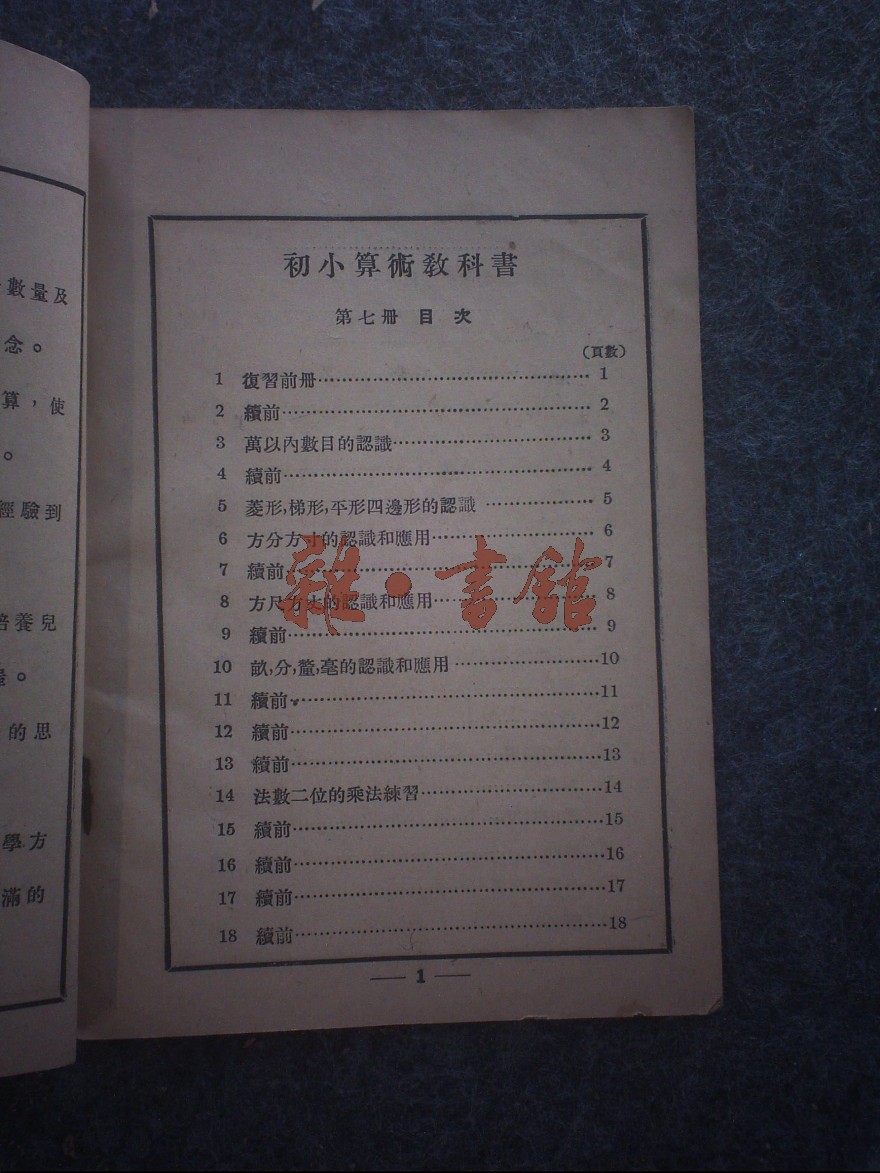 數量及
念。
算，使
。
經驗到
培養兒
。
的思
學方
滿的
初小算術教科書
第七冊 目 次
（頁數）
1 復習前冊…………………… 1
2 續前…………………… 2
3 萬以內數目的認識…………………… 3
4 續前…………………… 4
5 菱形，梯形，平形四邊形的認識 …………… 5
6 方分方寸的認識和應用…………………… 6
7 續前…………………… 7
8 方尺方丈的認識和應用…………………… 8
9 續前…………………… 9
10 畝，分，釐，毫的認識和應用 ……………10
11 續前……………………11
12 續前……………………12
13 續前……………………13
14 法數二位的乘法練習……………………14
15 續前……………………15
16 續前……………………16
17 續前……………………17
18 續前……………………18
— 1 —
雜·書館